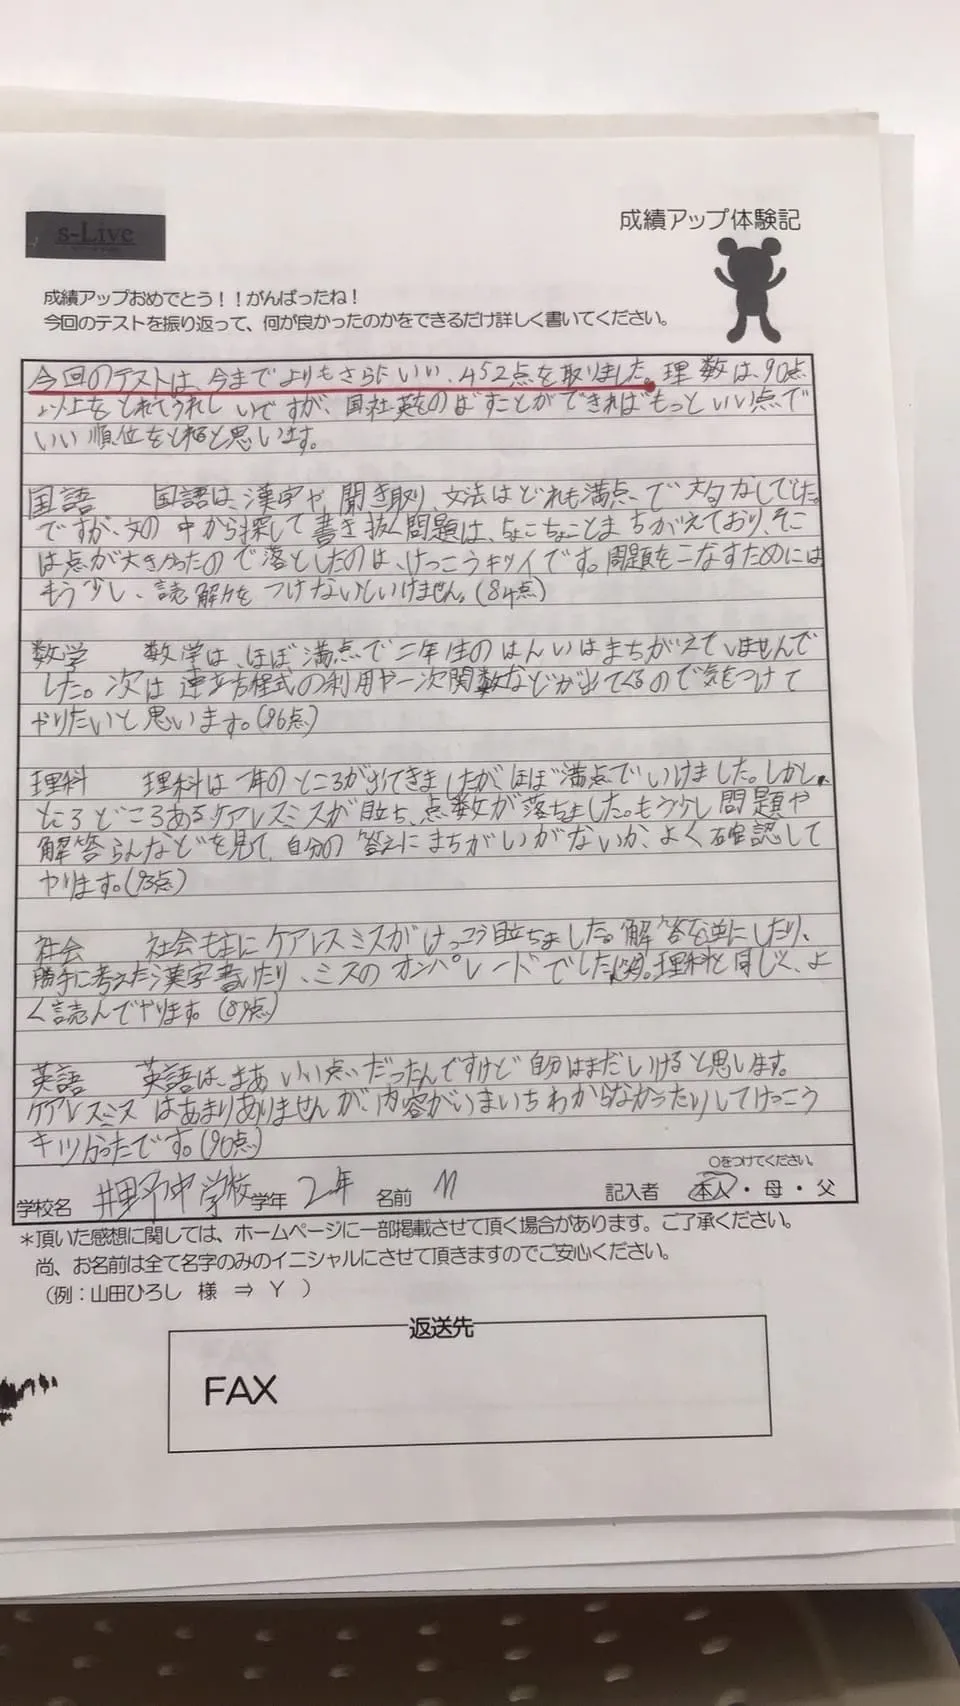 s-Live
成績アップ体験記
成績アップおめでとう！！がんばったね！
今回のテストを振り返って、何が良かったのかをできるだけ詳しく書いてください。
今回のテストは、今までよりもさらにいい、452点を取りました。理数は、90点
以上をとれてうれしいですが、国社英をのばすことができればもっといい点で
いい順位をとれると思います。
国語　国語は、漢字や聞き取り、文法はどれも満点で文句なしでした。
ですが、文の中から探して書き抜く問題は、ちょこちょことまちがえており、そこ
は点が大きかったので落としたのは、けっこうキツイです。問題をこなすためには
もう少し、読解力をつけないといけません。(84点)
数学　数学は、ほぼ満点で二年生のはんいはまちがえていませんで
した。次は連立方程式の利用や一次関数などが出てくるので気をつけて
やりたいと思います。(96点)
理科　理科は一年のところが出てきましたが、ほぼ満点でいけました。しかし、
ところどころあるケアレスミスが目立ち、点数が落ちました。もう少し問題や
解答らんなどを見て、自分の答えにまちがいがないか、よく確認して
やります。(93点)
社会　社会も主にケアレスミスがけっこう目立ちました。解答を逆にしたり、
勝手に考えた漢字書いたり、ミスのオンパレードでした(笑)。理科と同じく、よ
く読んでやります。(89点)
英語　英語は、まあいい点だったんですけど自分はまだいけると思います。
ケアレスミスはあまりありませんが、内容がいまいちわからなかったりしてけっこう
キツかったです。(90点)
○をつけてください。
学校名　井野中学校　学年　2年　名前　　記入者　本人・母・父
＊頂いた感想に関しては、ホームページに一部掲載させて頂く場合があります。ご了承ください。
尚、お名前は全て名字のみのイニシャルにさせて頂きますのでご安心ください。
（例：山田ひろし　様　⇒　Y　）
返送先
FAX